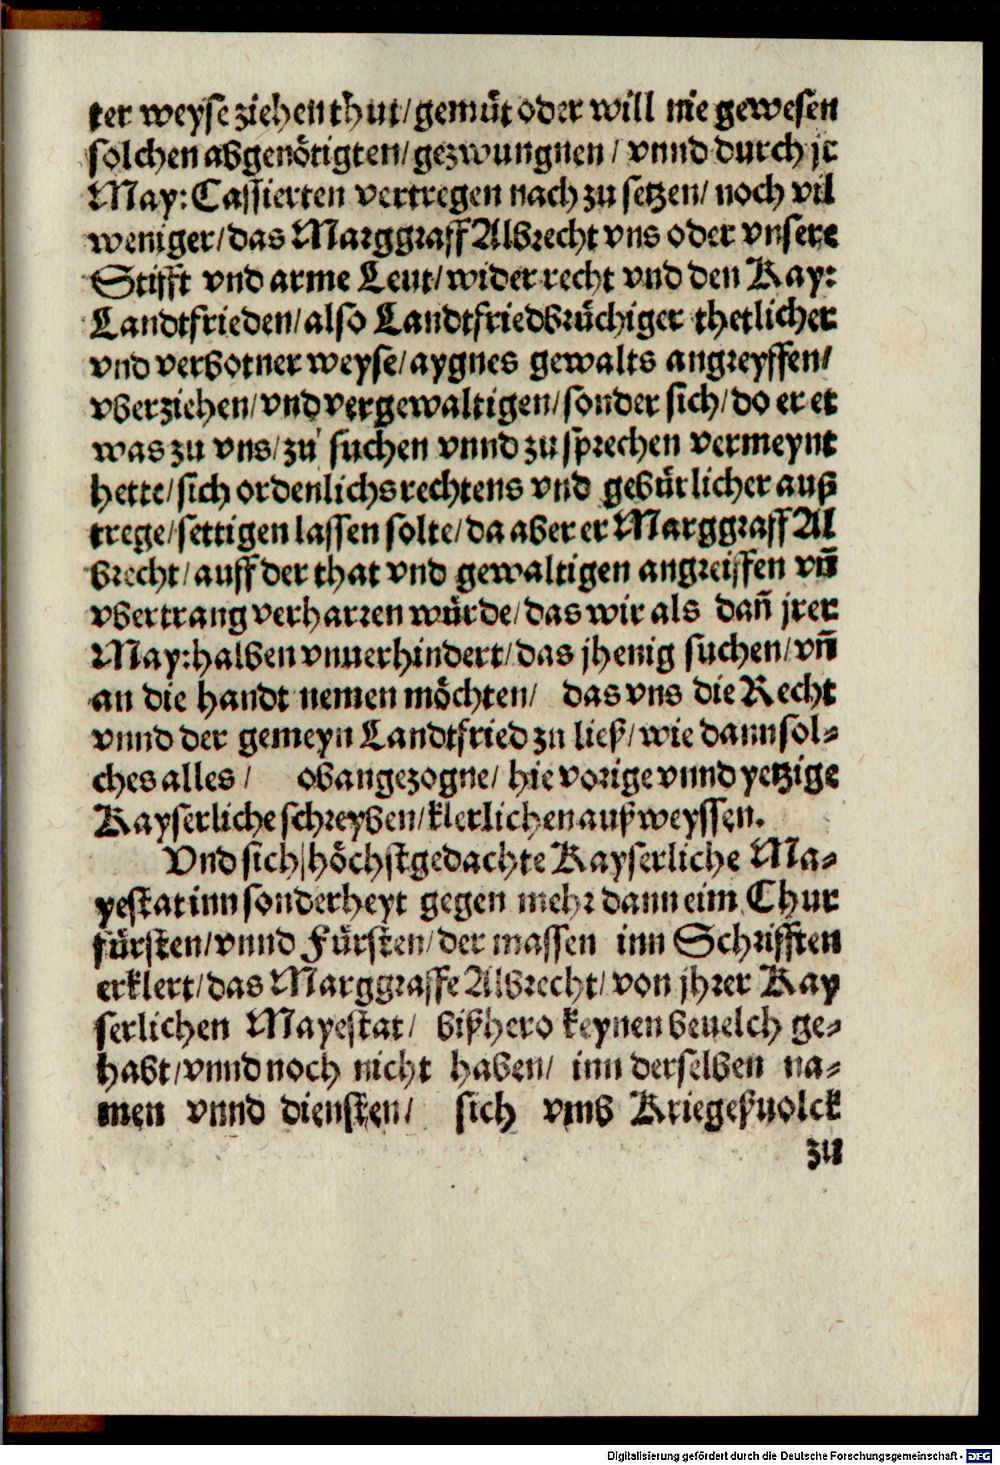 ter weyse ziehen thut/gemüt oder will nie gewesen
solchen abgenötigten/gezwungnen/ vnnd durch jr
May: Cassierten vertregen nach zu setzen/ noch vil
weniger/das Marggraff Albrecht vns oder vnsere
Stifft vnd arme Leut/wider recht vnd den Kay:
Landtfrieden/also Landtfriedbrüchiger thetlicher
vnd verbotner weyse/aygnes gewalts angreyffen/
vberziehen/vnd vergewaltigen/sonder sich/do er et
was zu vns/zu suchen vnnd zu sprechen vermeynt
hette/sich ordenlichs rechtens vnd gebürlicher auß
trege/settigen lassen solte/da aber er Marggraff Al
brecht/auff der that vnd gewaltigen angreiffen vñ
vbertrang verharren würde/das wir als dañ jrer
May:halben vnuerhindert/das jhenig suchen/vñ
an die handt nemen möchten/ das vns die Recht
vnnd der gemeyn Landtfried zu ließ/wie dann sol-
ches alles/ obangezogne/hie vorige vnnd yetzige
Kayserliche schreyben/klerlichen außweyssen.
Vnd sich/höchstgedachte Kayserliche Ma-
yestat inn sonderheyt gegen mehr dann eim Chur
fürsten/vnnd Fürsten/der massen inn Schrifften
erklert/das Marggraffe Albrecht/von jhrer Kay
serlichen Mayestat/ bißhero keynen beuelch ge-
habt/vnnd noch nicht haben/ inn derselben na-
men vnnd diensten/ sich vmb Kriegeßuolck
zu
Digitalisierung gefördert durch die Deutsche Forschungsgemeinschaft - DFG